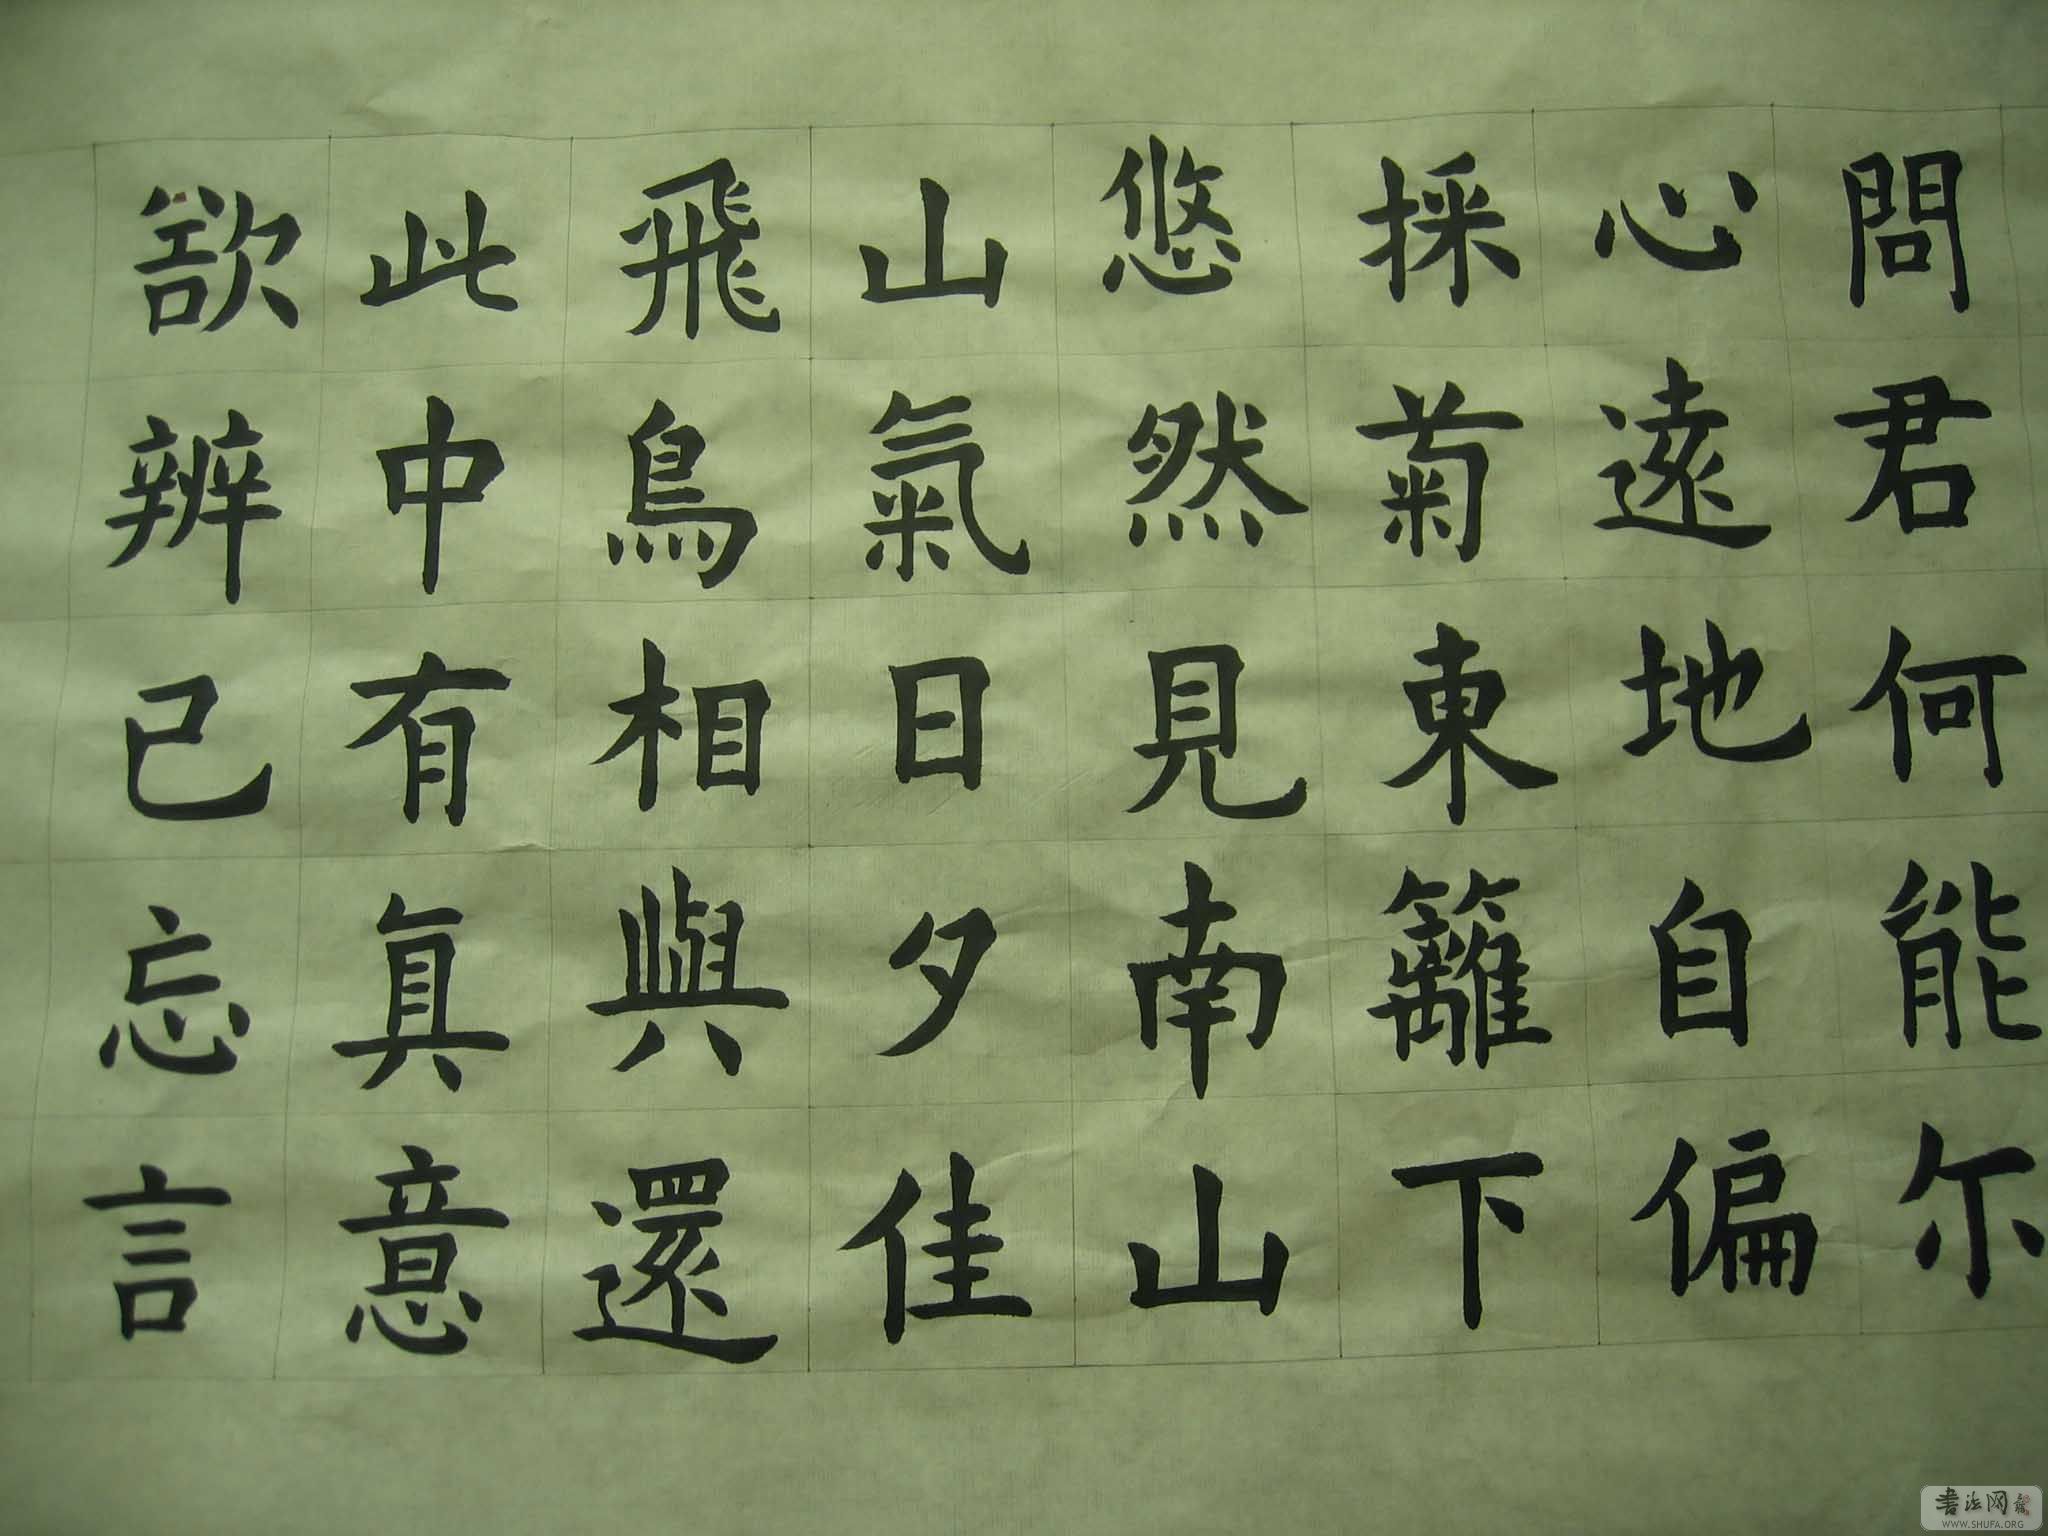 問君何能尓
心遠地自偏
採菊東籬下
悠然見南山
山氣日夕佳
飛鳥相與還
此中有真意
欲辨已忘言
书法网
WWW.SHUFA.ORG